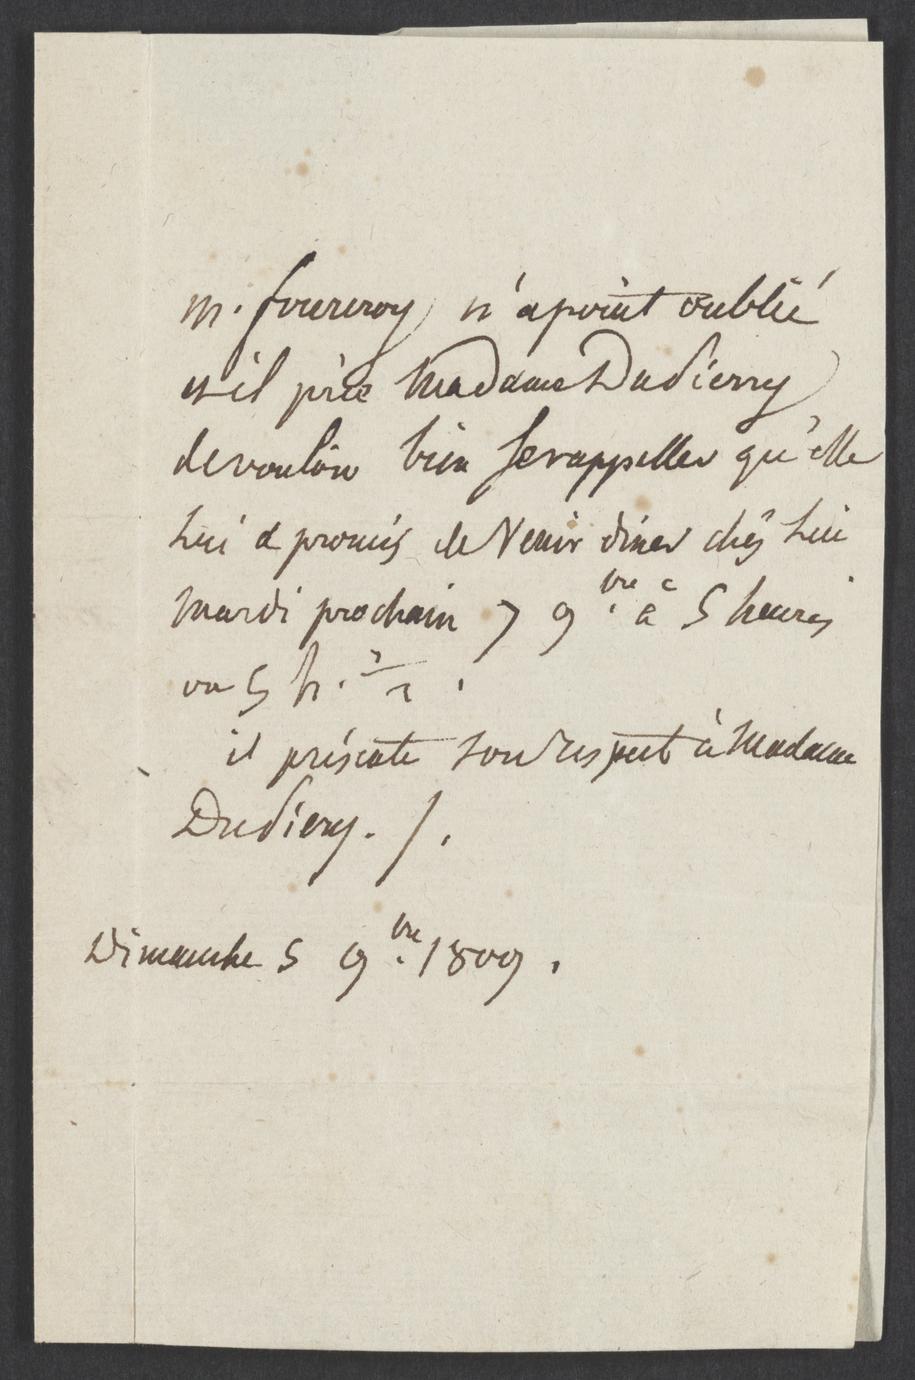 m. fourcroy n'a point oublié
et il prie Madame Dudierry
de vouloir bien se rappeller qu'elle
lui a promis de venir diner chéz lui
mardi prochain 7 9bre. à 5 heures
ou 5 h. 1/2.
il présente son respect à Madame
Dudiery. /.
Dimanche 5 9bre. 1809.